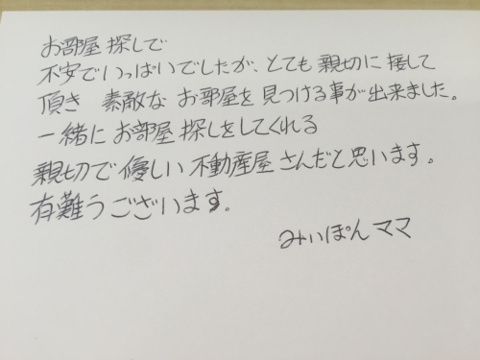 お部屋探しで
不安でいっぱいでしたが、とても親切に接して
頂き 素敵なお部屋を見つける事が出来ました。
一緒にお部屋探しをしてくれる
親切で優しい不動産屋さんだと思います。
有難うございます。
みぃぽんママ